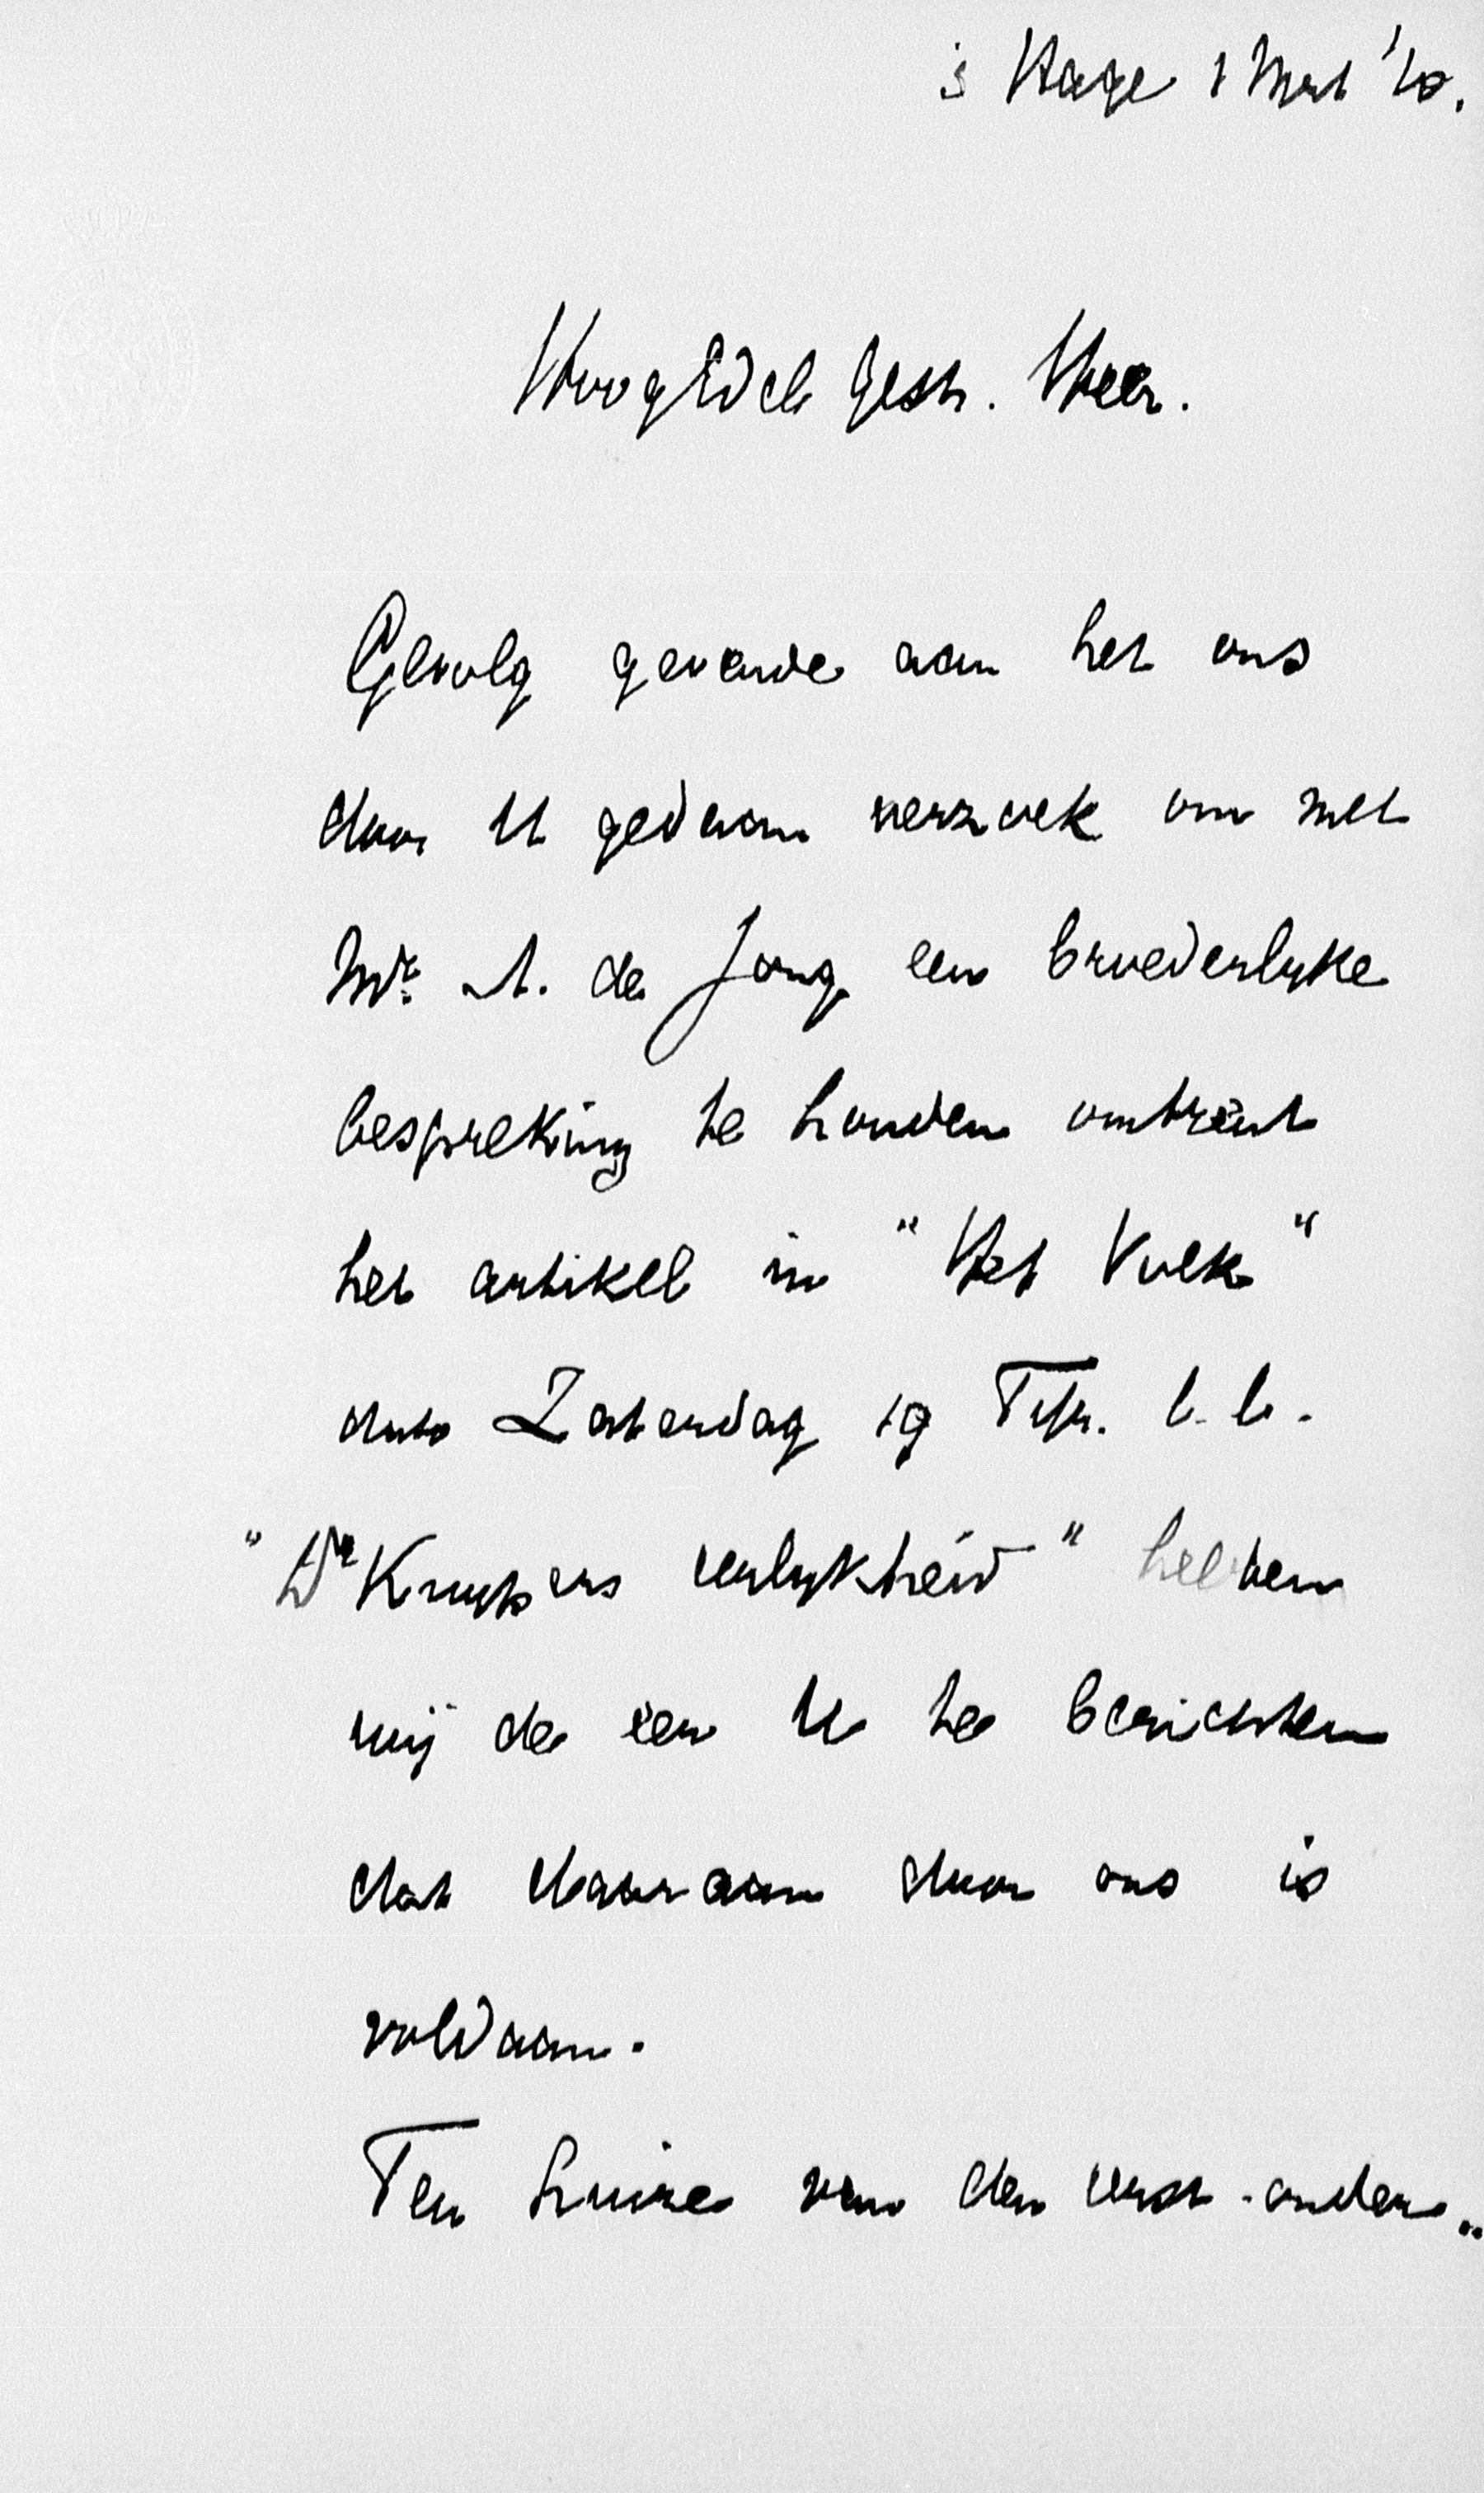 's Hage 1 Mrt '10.
HoogEdelGestr. Heer.
Gevolg gevende aan het ons
door U gedaan verzoek om met
Mr. A. de Jong een broederlyke
bespreking te houden omtrent
het artikel in "Het Volk"
dato Zaterdag 19 Febr. l.l.
"Dr Kuypers eerlykheid" hebben
wij de eer U te berichten
dat daaraan door ons is
voldaan.
Ten huize van den eerst-onder„